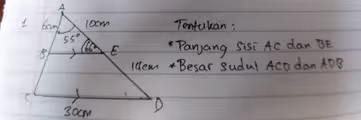 A
1 6cm 10cm Tentukan:
55°
B 66° E *Panjang sisi AC dan BE
18cm *Besar sudut ACD dan ADB
C D
30cm